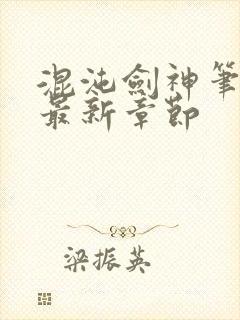 混沌劍神筆
最新章節
梁振英